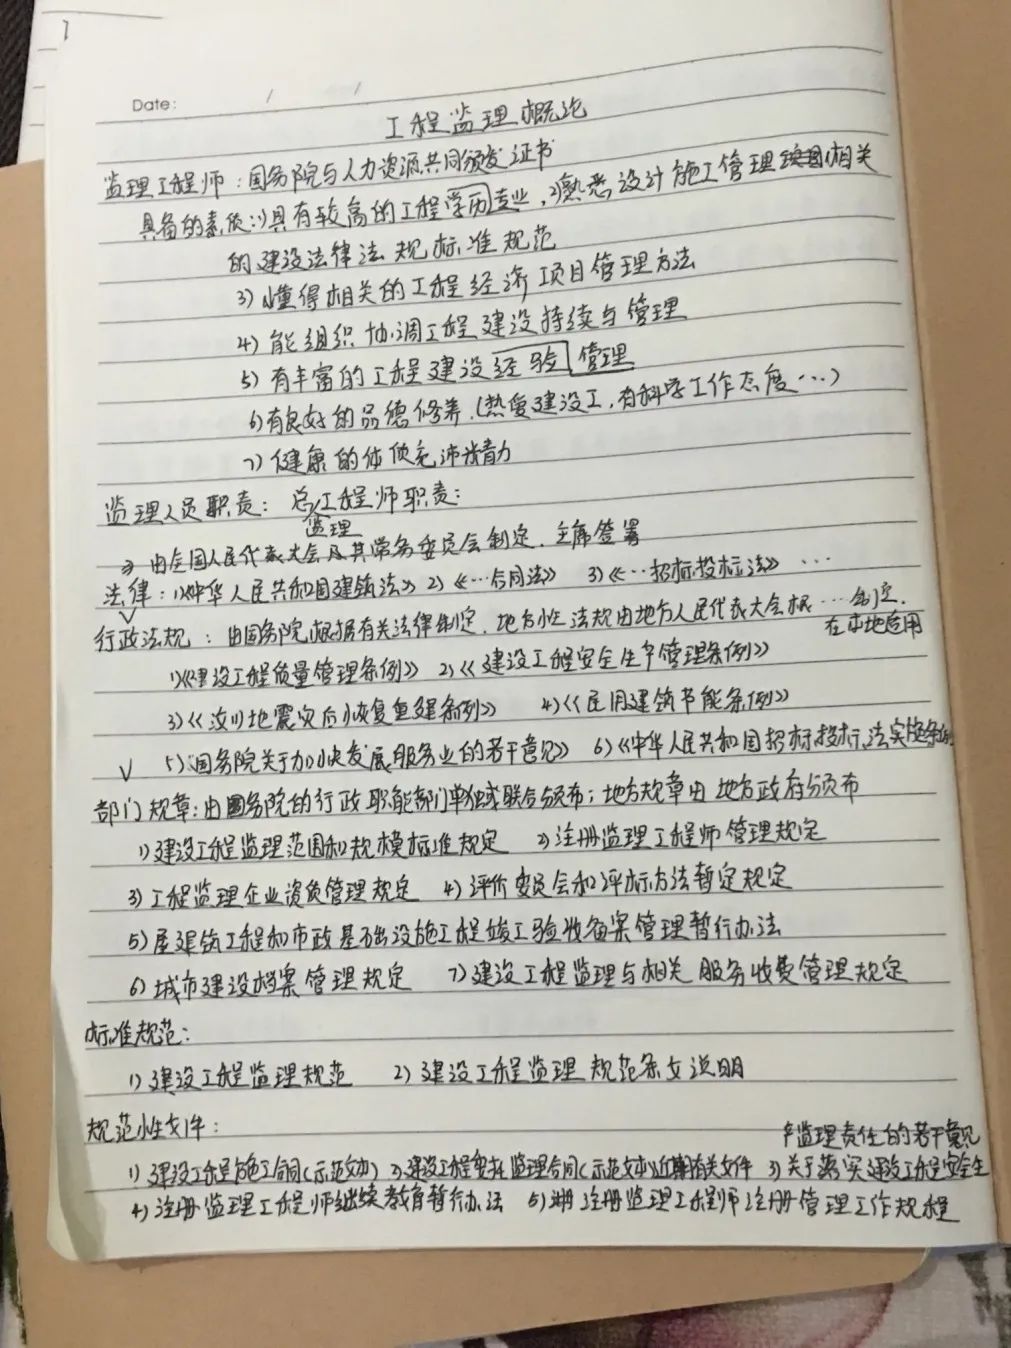 Date: / /
工程监理概论
监理工程师：国务院与人力资源共同颁发证书
具备的素质:1)具有较高的工程学历专业，2)熟悉设计施工管理相关
的建设法律法规标准规范
3)懂得相关的工程经济项目管理方法
4)能组织协调工程建设持续与管理
5)有丰富的工程建设经验管理
6)有良好的品德修养.(热爱建设工,有科学工作态度…)
7)健康的体质充沛精力
监理人员职责：总工程师职责：
监理
由全国人民代表大会及其常务委员会制定.主席签署
法律：1)《中华人民共和国建筑法》2)《…合同法》 3)《…招标投标法》 …
行政法规：由国务院根据有关法律制定.地方性法规由地方人民代表大会根…制定.
在本地适用
1)《建设工程质量管理条例》2)《建设工程安全生产管理条例》
3)《汶川地震灾后恢复重建条例》 4)《民用建筑节能条例》
5)《国务院关于加快发展服务业的若干意见》 6)《中华人民共和国招标投标法实施条例
部门规章:由国务院的行政职能部门单独或联合颁布；地方规章由地方政府颁布
1)建设工程监理范围和规模标准规定 2)注册监理工程师管理规定
3)工程监理企业资质管理规定 4)评价委员会和评标方法暂定规定
5)屋建筑工程和市政基础设施工程竣工验收备案管理暂行办法
6)城市建设档案管理规定 7)建设工程监理与相关服务收费管理规定
标准规范：
1)建设工程监理规范 2)建设工程监理规范条文说明
规范性文件：
产监理责任的若干意见
1)建设工程施工合同(示范文本) 2)建设工程委托监理合同(示范文本)有关文件 3)关于落实建设工程安全生
4)注册监理工程师继续教育暂行办法 5)注册监理工程师注册管理工作规程